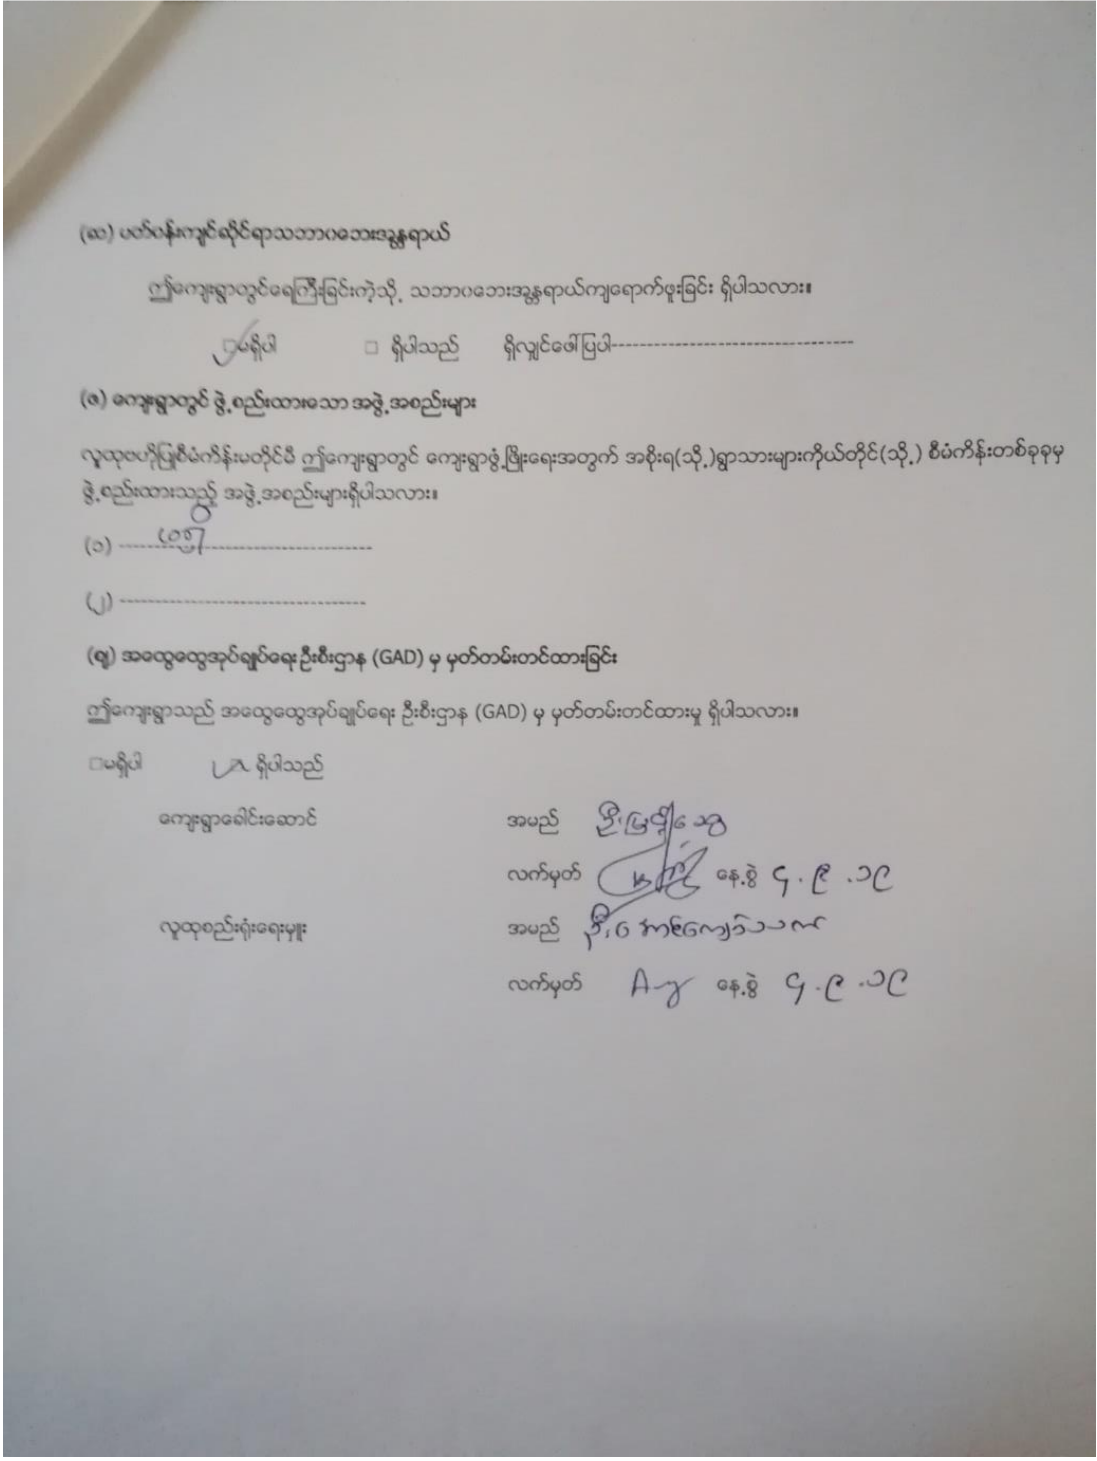 (ဆ) ပတ်ဝန်းကျင်ဆိုင်ရာသဘာဝဘေးအန္တရာယ်
ဤကျေးရွာတွင်ရေကြီးခြင်းကဲ့သို့ သဘာဝဘေးအန္တရာယ်ကျရောက်ဖူးခြင်း ရှိပါသလား။
□မရှိပါ □ ရှိပါသည် ရှိလျှင်ဖေါ်ပြပါ----------------------------------
(ဇ) ကျေးရွာတွင် ဖွဲ့စည်းထားသော အဖွဲ့အစည်းများ
လူထုဗဟိုပြုစီမံကိန်းမတိုင်မီ ဤကျေးရွာတွင် ကျေးရွာဖွံ့ဖြိုးရေးအတွက် အစိုးရ(သို့)ရွာသားများကိုယ်တိုင်(သို့) စီမံကိန်းတစ်ခုခုမှ
ဖွဲ့စည်းထားသည့် အဖွဲ့အစည်းများရှိပါသလား။
(၁) -----------------------------------
(၂) -----------------------------------
(ဈ) အထွေထွေအုပ်ချုပ်ရေးဦးစီးဌာန (GAD) မှ မှတ်တမ်းတင်ထားခြင်း
ဤကျေးရွာသည် အထွေထွေအုပ်ချုပ်ရေး ဦးစီးဌာန (GAD) မှ မှတ်တမ်းတင်ထားမှု ရှိပါသလား။
□မရှိပါ ရှိပါသည်
ကျေးရွာခေါင်းဆောင် အမည်
လက်မှတ် နေ့စွဲ ၄.၉.၁၉
လူထုစည်းရုံးရေးမှူး အမည် ဦးအောင်ကျော်သက်
လက်မှတ် နေ့စွဲ ၄.၉.၁၉